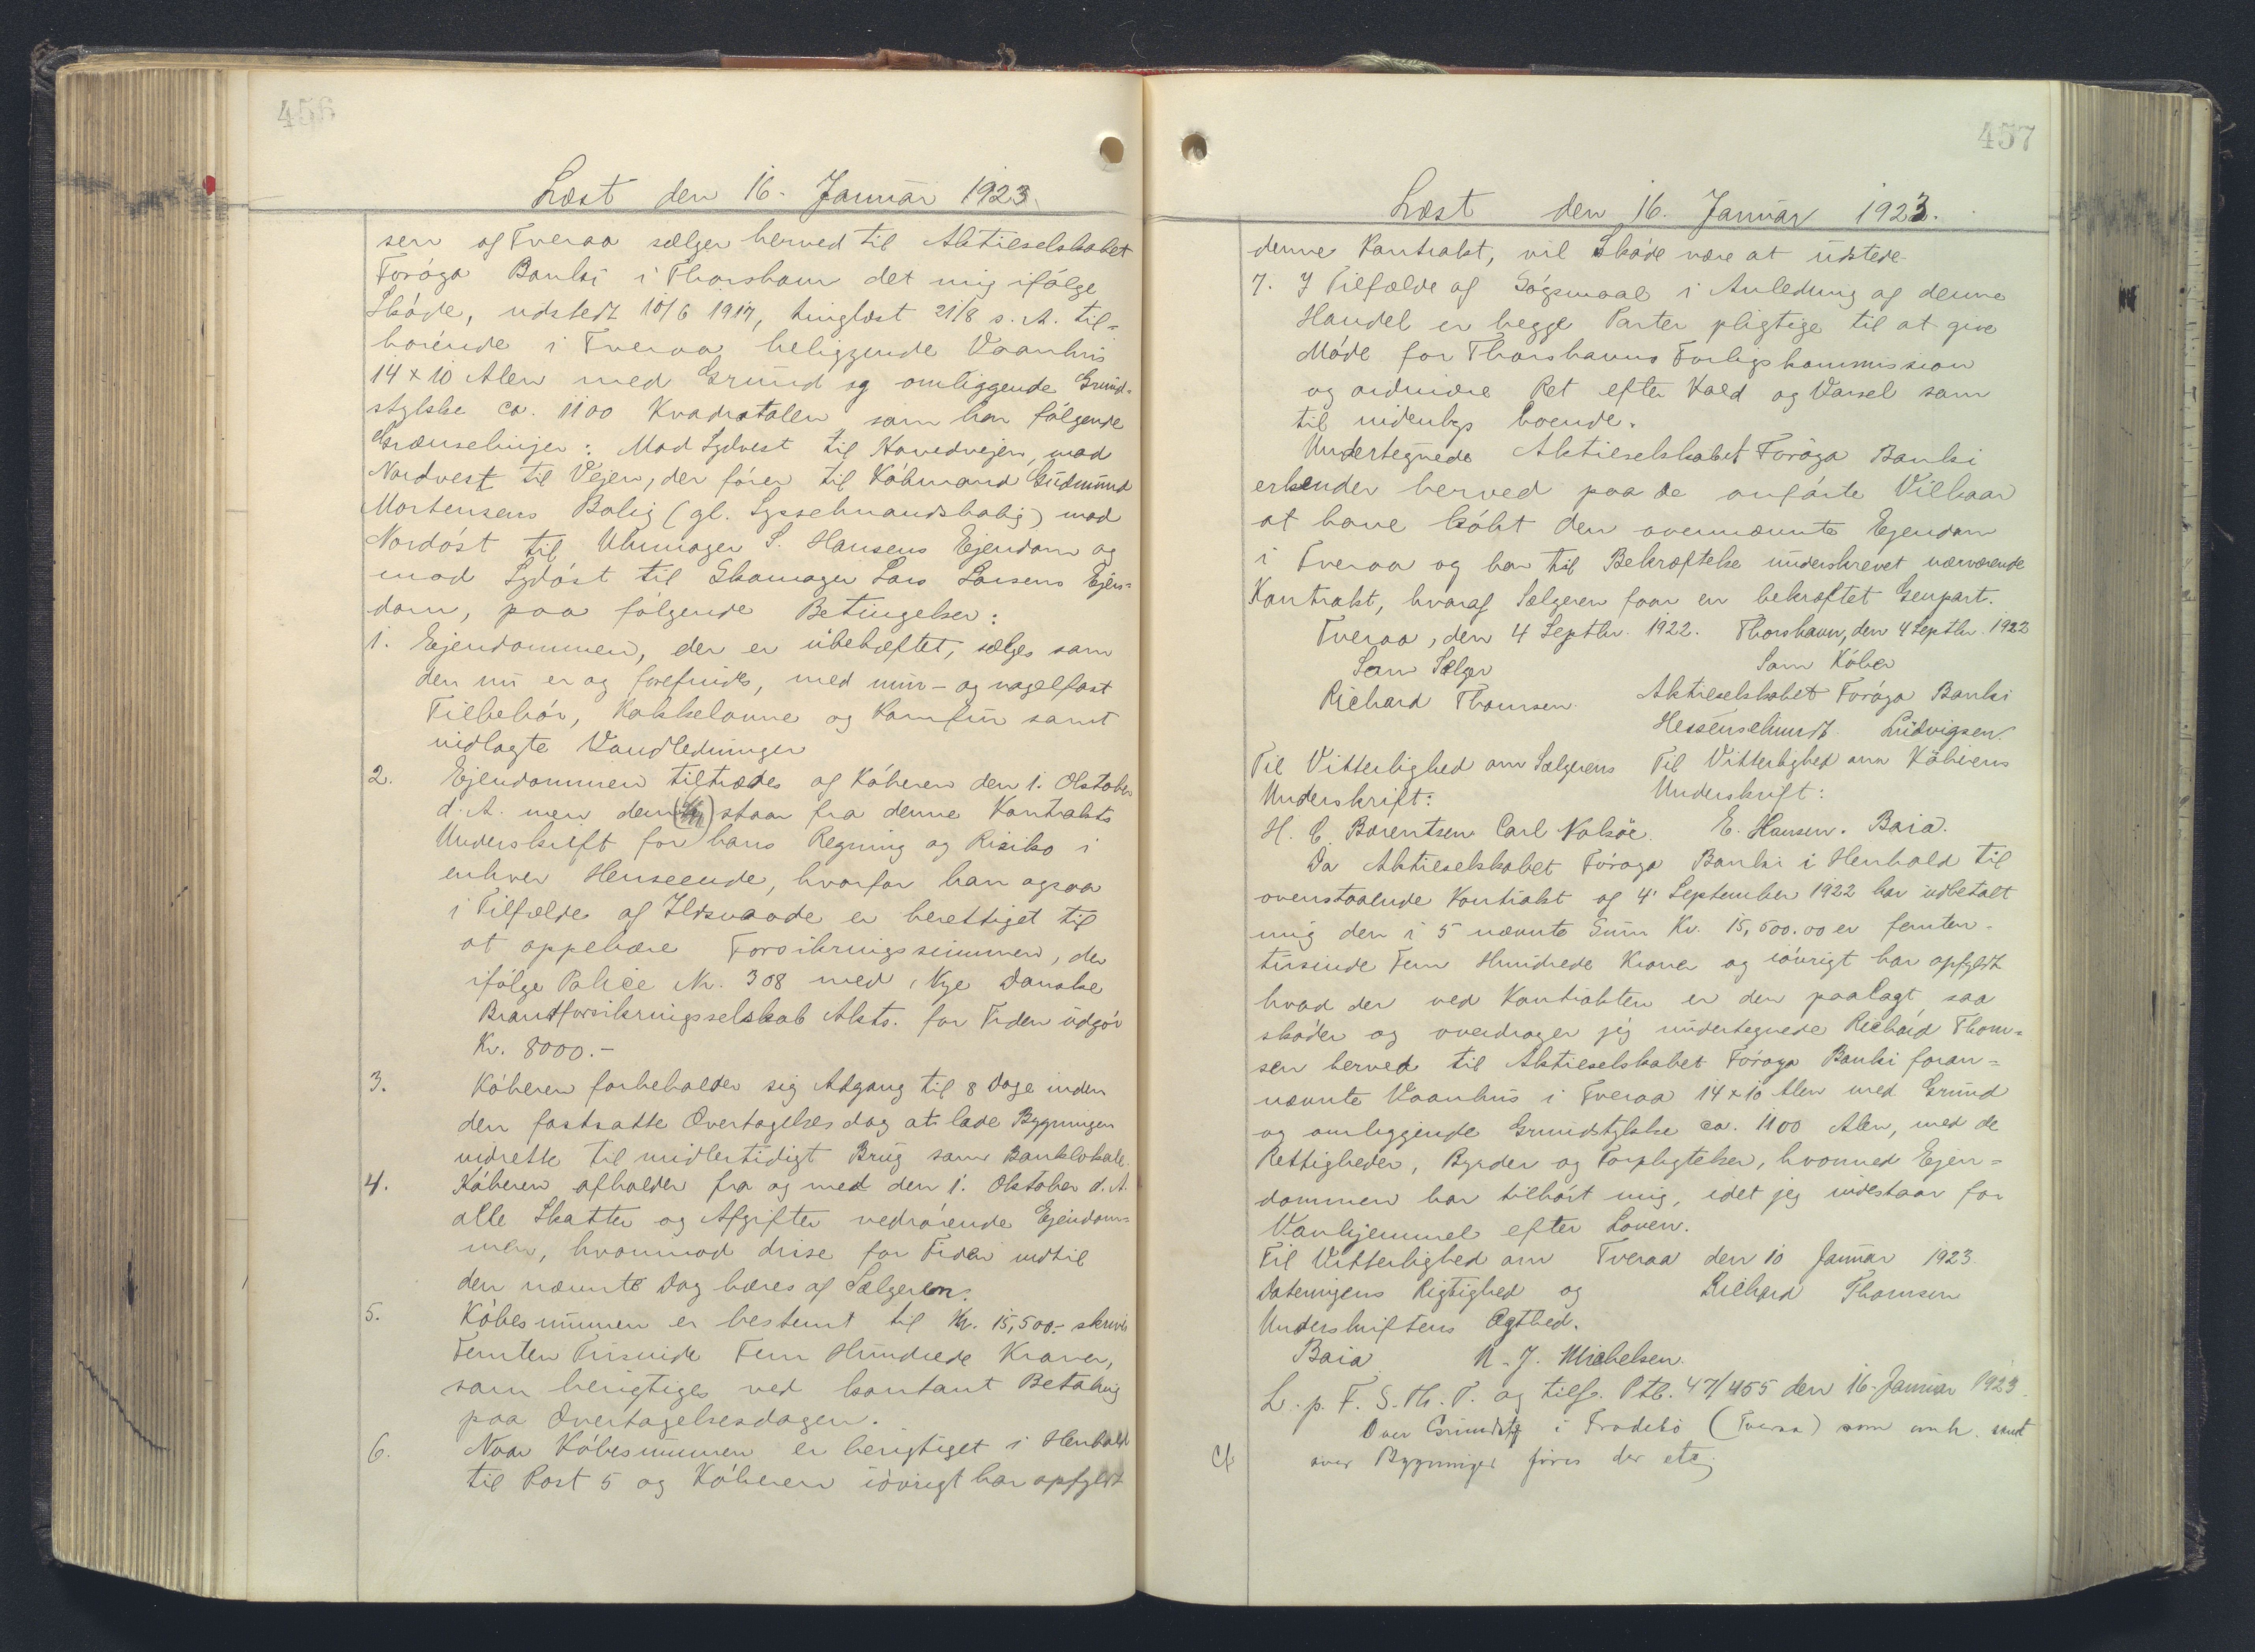 456
Læst den 16. Januar 1923.
sen af Tveraa sælger herved til Aktieselskabet
Foróya Banki i Thorshavn det mig ifólge
Skóde, udstedt 10/6 1917, tinglæst 21/8 s. A. til=
hórende i Tveraa beliggende Vaanhus
14 x 10 Alen med Grund og omliggende Grund=
stykke ca. 1100 Kvadratalen som har fólgende
Grænselinjer: Mod Sydvest til Hovedvejen, mod
Nordvest til Vejen, der fórer til Kóbmand Gudmund
Mortensens Bolig (gl. Sysselmandsbolig) mod
Nordóst til Uhrmager S. Hansens Ejendom og
mod Sydóst til Skomager Lars Larsens Ejen=
dom, paa fólgende Betingelser:
1. Ejendommen, der er ubehæftet, sælges som
den nu er og forefindes, med mur- og nagelfast
Tilbehór, Kakkelovne og Komfur samt
indlagte Vandledninger
2. Ejendommen tiltrædes af Kóberen den 1. Oktober
d. A. men den staar fra denne Kontrakts
Underskrift for hans Regning og Risiko i
enhver Henseende, hvorfor han ogsaa
i Tilfælde af Ildsvaade er berettiget til
at oppebære Forsikringssummen, der
ifólge Police Nr. 308 med, Nye Danske
Brandforsikringsselskab Akts. for Tiden udgór
Kr. 8000.-
3. Kóberen forbeholder sig Adgang til 8 Dage inden
den fastsatte Overtagelsesdag at lade Bygningen
indrette til midlertidigt Brug som Banklokale.
4. Kóberen afholder fra og med den 1. Oktober d. A.
alle Skatter og Afgifter vedrórende Ejendom=
men, hvorimod disse for Tiden indtil
den nævnte Dag bæres af Sælgeren.
5. Kóbesummen er bestemt til Kr. 15,500.- skriver
Femten Tusinde Fem Hundrede Kroner,
som berigtiges ved kontant Betaling
paa Overtagelsesdagen.
6. Naar Kóbesummen er berigtiget i Henhold
til Post 5 og Kóberen ióvrigt har opfyldt
457
Læst den 16. Januar 1923.
denne Kontrakt, vil Skóde være at udstede.
7. I Tilfælde af Sógsmaal i Anledning af denne
Handel er begge Parter pligtige til at give
Móde for Thorshavns Forligskommission
og ordinære Ret efter Kald og Varsel som
til indenbys boende.
Undertegnede Aktieselskabet Foróya Banki
erkender herved paa de anfórte Vilkaar
at have kóbt den ovennævnte Ejendom
i Tveraa og har til Bekræftelse underskrevet nærværende
Kontrakt, hvoraf Sælgeren faar en bekræftet Genpart.
Tveraa, den 4 Septbr. 1922. Thorshavn, den 4 Septbr. 1922
Som Sælger Som Kóber
Richard Thomsen. Aktieselskabet Foróya Banki
Hessenschmidt. Ludvigsen.
Til Vitterlighed om Sælgerens Til Vitterlighed om Kóberens
Underskrift: Underskrift:
H. C. Barentsen Carl Nolsóe. E. Hansen. Baia.
Da Aktieselskabet Fóroya Banki i Henhold til
ovenstaaende Kontrakt af 4' September 1922 har udbetalt
mig den i 5 nævnte Sum Kr. 15,500.00 er femten=
tusinde Fem Hundrede Kroner og ióvrigt har opfyldt
hvad der ved Kontrakten er den paalagt, saa
skóder og overdrager jeg undertegnede Richard Thom=
sen herved til Aktieselskabet Fóroya Banki foran=
nævnte Vaanhus i Tveraa 14 x 10 Alen med Grund
og omliggende Grundstykke ca. 1100 Alen, med de
Rettigheder, Byrder og Forpligtelser, hvormed Ejen=
dommen har tilhórt mig, idet jeg indestaar for
Vanhjemmel efter Loven.
Til Vitterlighed om Tveraa den 10 Januar 1923.
Dateringens Rigtighed og Richard Thomsen
Underskriftens Ægthed.
Baia N. J. Michelsen.
L. p. F. S. Th. P. og tilf. Ptb. 47/455 den 16. Januar 1923.
Over Grundstk i Trodebó (Tveraa) som omh. samt
over Bygninger fóres der ej